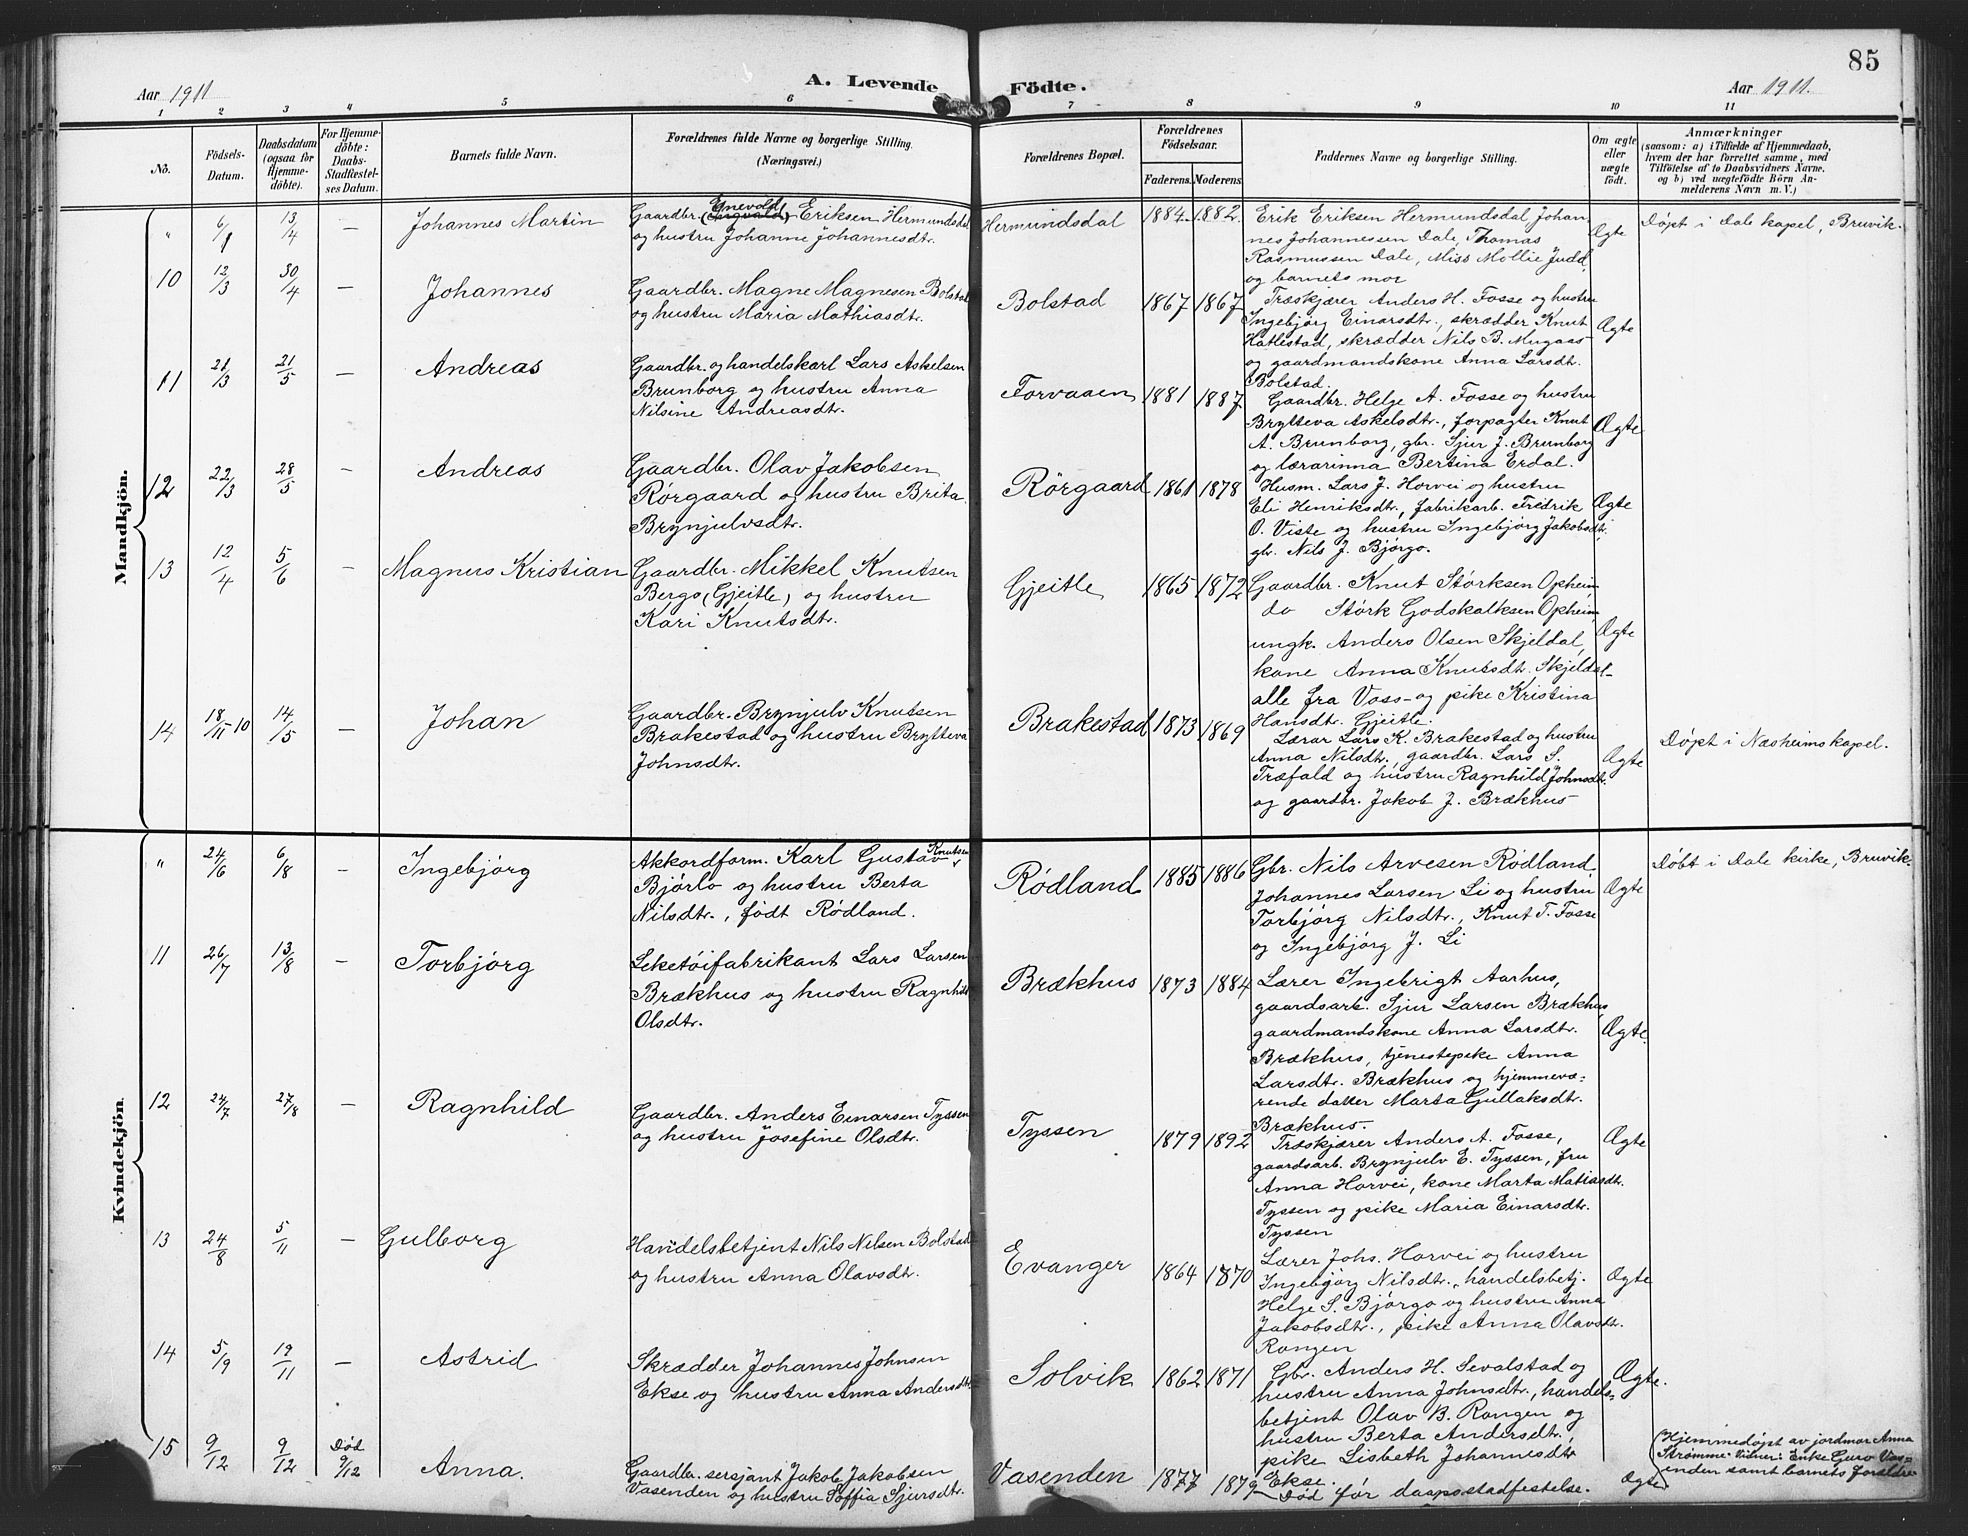 85
Aar 1911
A. Levende Födte.
Aar 1911.
1 2 3 4 5 6 7 8 9 10 11
No.
Födsels-Datum.
Daabsdatum (ogsaa for Hjemmedöbte).
For Hjemmedöbte: Daabs-Stadfæstelses Datum.
Barnets fulde Navn.
Forældrenes fulde Navne og borgerlige Stilling. (Næringsvei.)
Forældrenes Bopæl.
Forældrenes Födselsaar.
Faderens. Moderens.
Faddernes Navne og borgerlige Stilling.
Om ægte eller uægte födt.
Anmærkninger
(saasom: a) i Tilfælde af Hjemmedaab, hvem der har forrettet samme, med Tilföielse af to Daabsvidners Navne, og b) ved uægtefödte Börn Anmelderens Navn m. V.)
Mandkjön.
" 6/1 13/4 — Johannes Martin
Enevold
Gaardbr. (Ingvald) Eriksen Hermundsdal
og hustru Johanne Johannesdtr.
Hermundsdal 1884 1882.
Erik Eriksen Hermundsdal, Johan-
nes Johannessen Dale, Thomas
Rasmussen Dale, Miss Mollie Judd,
og barnets mor
Ægte
Døpt i Dale kapel, Bruvik.
10 12/3 30/4 — Johannes
Gaardbr. Magne Magnesen Bolstad
og hustru Maria Mathiasdtr.
Bolstad 1867 1867
Træskjærer Anders H. Fosse og hustru
Ingebjørg Einarsdtr., skrædder Knut
Hatlestad, skrædder Nils B. Mugaas
og gaardmandskone Anna Larsdtr.
Bolstad.
Ægte
11 21/3 21/5 — Andreas
Gaardbr. og handelskarl Lars Askelsen
Brunborg og hustru Anna
Nilsine Andreasdtr.
Forvaaen 1881 1887
Gaardbr. Helge A. Fosse og hustru
Brytteva Askelsdtr., forpagter Knut
A. Brunborg, gbr. Sjur J. Brunborg
og lærarinna Bertina Erdal.
Ægte
12 22/3 28/5 — Andreas
Gaardbr. Olav Jakobsen
Rörgaard og hustru Brita
Brynjulvsdtr.
Rörgaard 1861 1878
Husm. Lars J. Horvei og hustru
Eli Henriksdtr., fabrikarb. Fredrik
O. Viste og hustru Ingebjørg Jakobsdtr,
gbr. Nils J. Bjørgo.
Ægte
13 12/4 5/6 — Magnus Kristian
Gaardbr. Mikkel Knutsen
Bergo (Gjeitle) og hustru
Kari Knutsdtr.
Gjeitle 1865 1872
Gaardbr. Knut Störksen Opheim,
do Störk Godskalksen Opheim,
ungk. Anders Olsen Skjeldal,
kone Anna Knutsdtr. Skjeldal–
alle fra Voss – og pike Kristina
Hansdtr. Gjeitle.
Ægte
14 18/11 10 14/5 — Johan
Gaardbr. Brynjulv Knutsen
Brakestad og hustru Brytteva
Johnsdtr.
Brakestad 1873 1869
Lærar Lars K. Brakestad og hustru
Anna Nilsdtr., gaardbr. Lars S.
Træfald og hustru Ragnhild Johnsdtr.
og gaardbr. Jakob J. Brækhus
Ægte
Døpt i Næsheims kapel.
Kvindekjön.
" 24/6 6/8 — Ingebjörg
Akkordform. Karl Gustav Knutsen
Bjørlo og hustru Berta
Nilsdtr., født Rödland.
Rödland 1885 1886
Gbr. Nils Arvesen Rödland,
Johannes Larsen Li og hustru
Torbjörg Nilsdtr., Knut T. Fosse
og Ingebjörg J. Li
Ægte
Døbt i Dale kirke, Bruvik.
11 26/7 13/8 — Torbjörg
Leketøifabrikant Lars Larsen
Brækhus og hustru Ragnhild
Olsdtr.
Brækhus 1873 1884
Lærer Ingebrigt Aarhus,
gaardsarb. Sjur Larsen Brækhus,
gaardmandskone Anna Larsdtr.
Brækhus, tjenestepike Anna
Larsdtr. Brækhus og hjemmevæ=
rende datter Marta Gullaksdtr.
Brækhus.
Ægte.
12 24/7 27/8 — Ragnhild
Gaardbr. Anders Einarsen Tyssen
og hustru Josefine Olsdtr.
Tyssen 1879 1892
Træskjærer Anders A. Fosse,
gaardsarb. Brynjulv E. Tyssen, fru
Anna Horvei, kone Marta Matiasdtr.
Tyssen og pike Maria Einarsdtr.
Tyssen
Ægte
13 24/8 5/11 — Gulborg
Handelsbetjent Nils Nilsen Bolstad
og hustru Anna Olavsdtr.
Evanger 1864 1870
Lærer Johs. Horvei og hustru
Ingebjörg Nilsdtr., handelsbetj.
Helge S. Bjørgo og hustru Anna
Jakobsdtr., pike Anna Olavsdtr.
Rongen
Ægte
14 5/9 19/11 — Astrid
Skrædder Johannes Johnsen
Ekse og hustru Anna Andersdtr
Solvik 1862 1871
Gbr. Anders H. Sevalstad og
hustru Anna Johnsdtr., handels=
betjent Olav B. Rongen og
hustru Berta Andersdtr.,
pike Lisbeth Johannesdtr
Ekse.
Ægte.
15 9/12 9/12 Død 9/12 Anna.
Gaardbr. sersjant Jakob Jakobsen
Vasenden og hustru Soffia Sjursdtr.
Vasenden 1877 1879
Død før daapsstadfestelse.
Ægte
(Hjemmedøpt av jordmor Anna
Strømme. Vidner: Enke Guro Vas=
enden samt barnets forældre